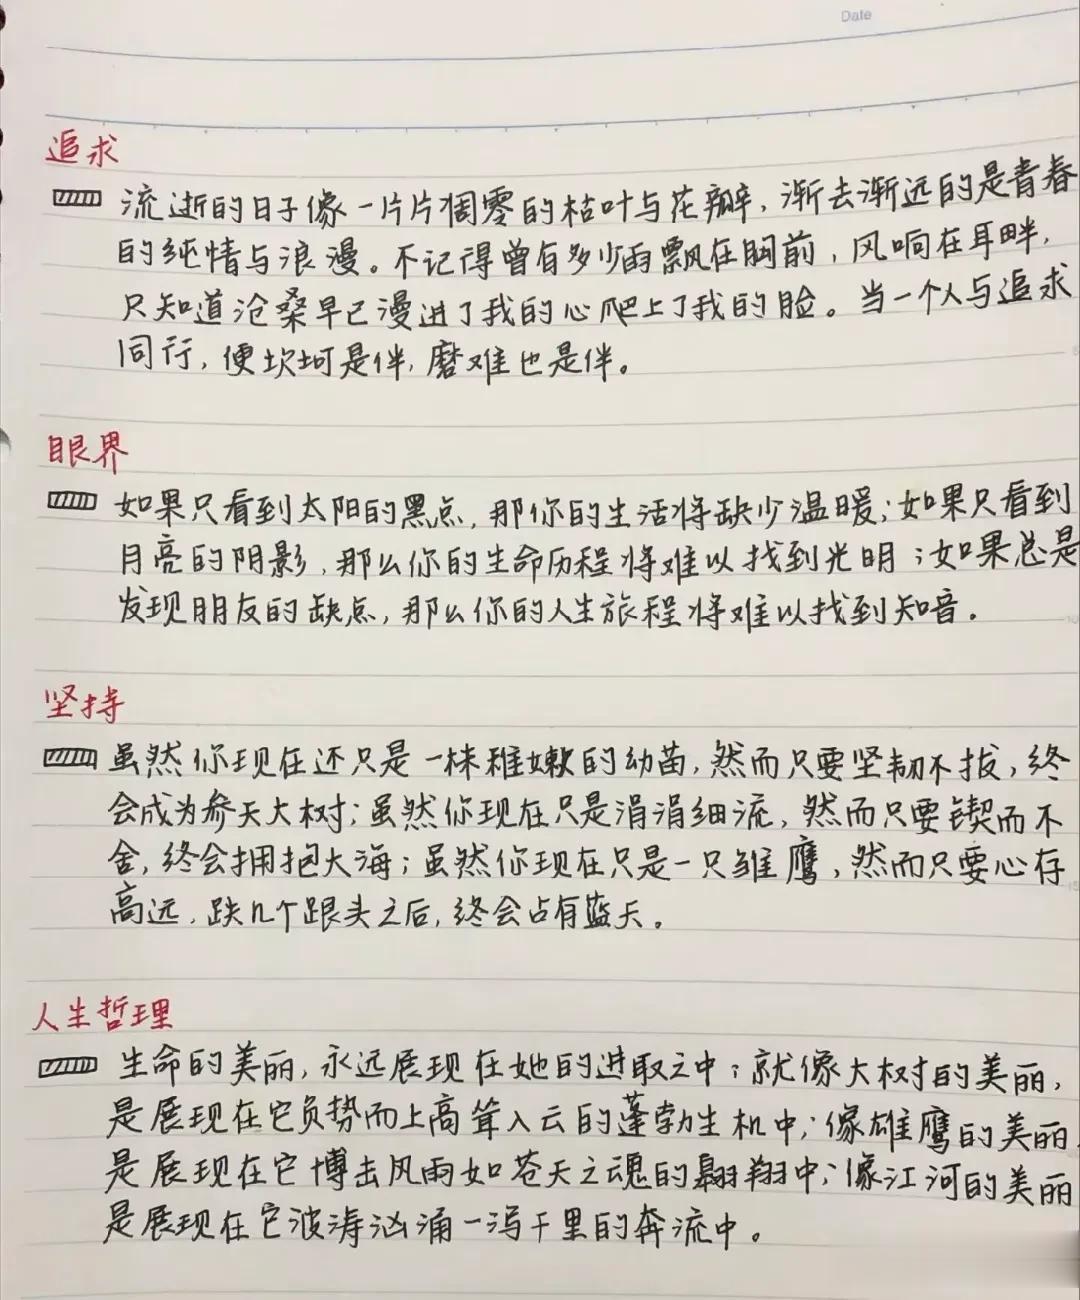 Date
追求
流逝的日子像一片片凋零的枯叶与花瓣，渐去渐远的是青春
的纯情与浪漫。不记得曾有多少雨飘在胸前，风响在耳畔，
只知道沧桑早已漫进了我的心爬上了我的脸。当一个人与追求
同行，便坎坷是伴，磨难也是伴。
眼界
如果只看到太阳的黑点，那你的生活将缺少温暖；如果只看到
月亮的阴影，那么你的生命历程将难以找到光明；如果总是
发现朋友的缺点，那么你的人生旅程将难以找到知音。
坚持
虽然你现在还只是一株稚嫩的幼苗，然而只要坚韧不拔，终
会成为参天大树；虽然你现在只是涓涓细流，然而只要锲而不
舍，终会拥抱大海；虽然你现在只是一只雏鹰，然而只要心存
高远，跌几个跟头之后，终会占有蓝天。
人生哲理
生命的美丽，永远展现在她的进取之中；就像大树的美丽，
是展现在它负势而上高耸入云的蓬勃生机中；像雄鹰的美丽
是展现在它搏击风雨如苍天之魂的翱翔中；像江河的美丽
是展现在它波涛汹涌一泻千里的奔流中。